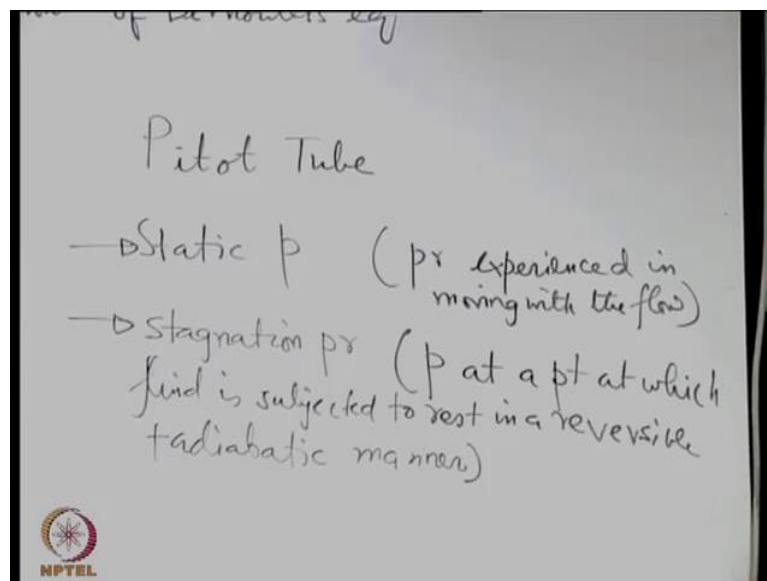 of Bernoulli's eq
Pitot Tube
→ Static p (pr experienced in
moving with the flow)
→ Stagnation pr (p at a pt at which
fluid is subjected to rest in a reversible
+ adiabatic manner)
NPTEL